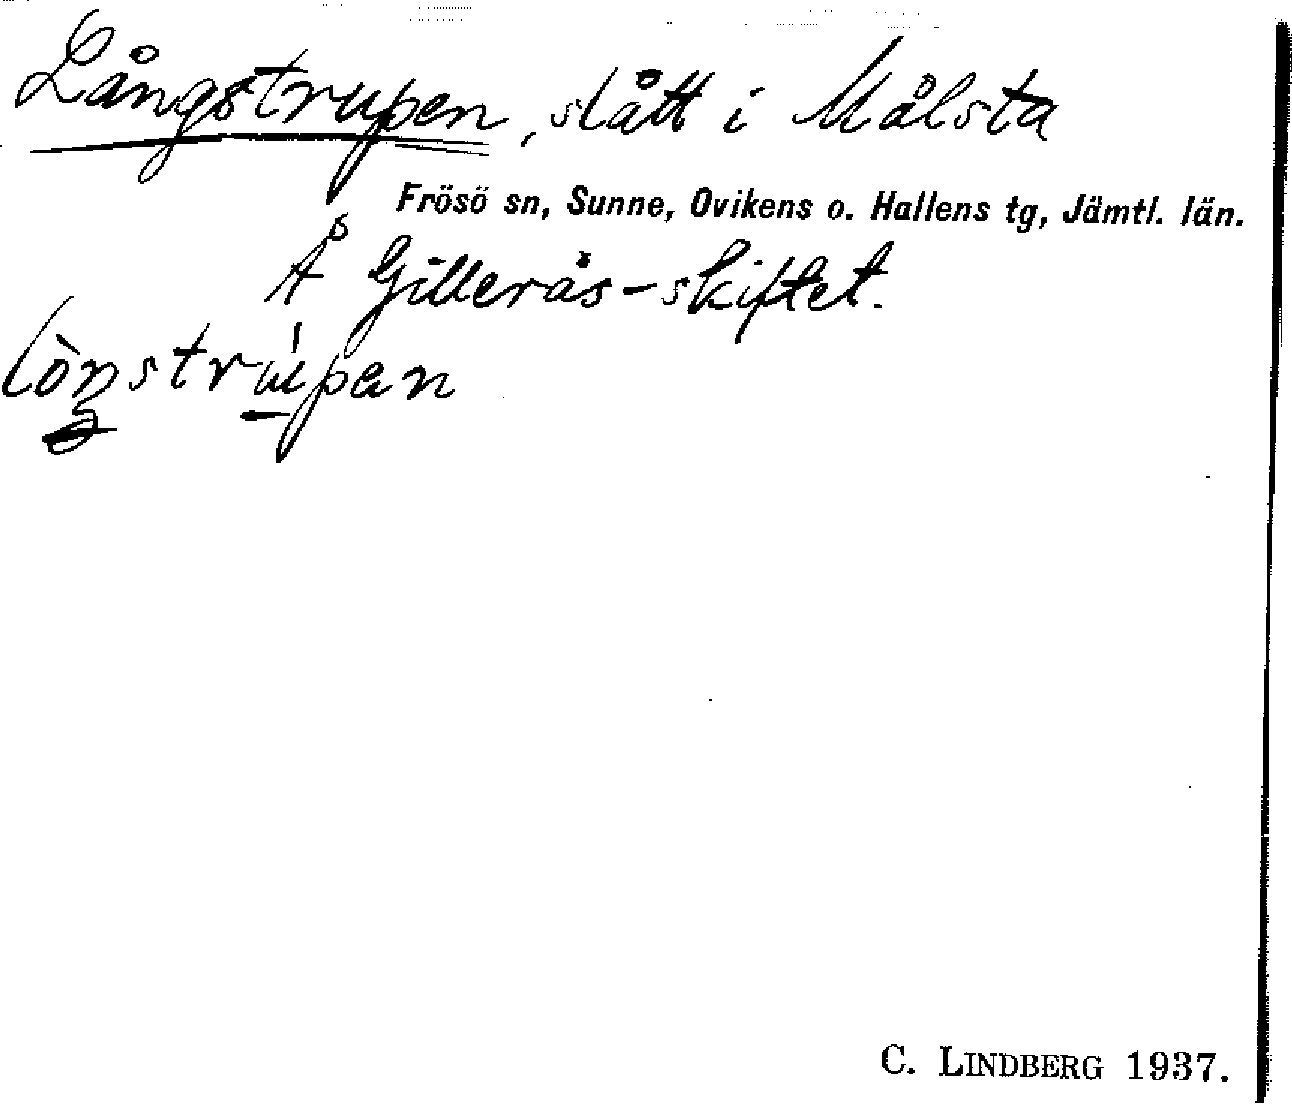 Långstrupen, slått i Målsta
Frösö sn, Sunne, Ovikens o. Hallens tg, Jämtl. län.
Å Gillerås-skiftet.
lòŋstrúpan
C. LINDBERG 1937.